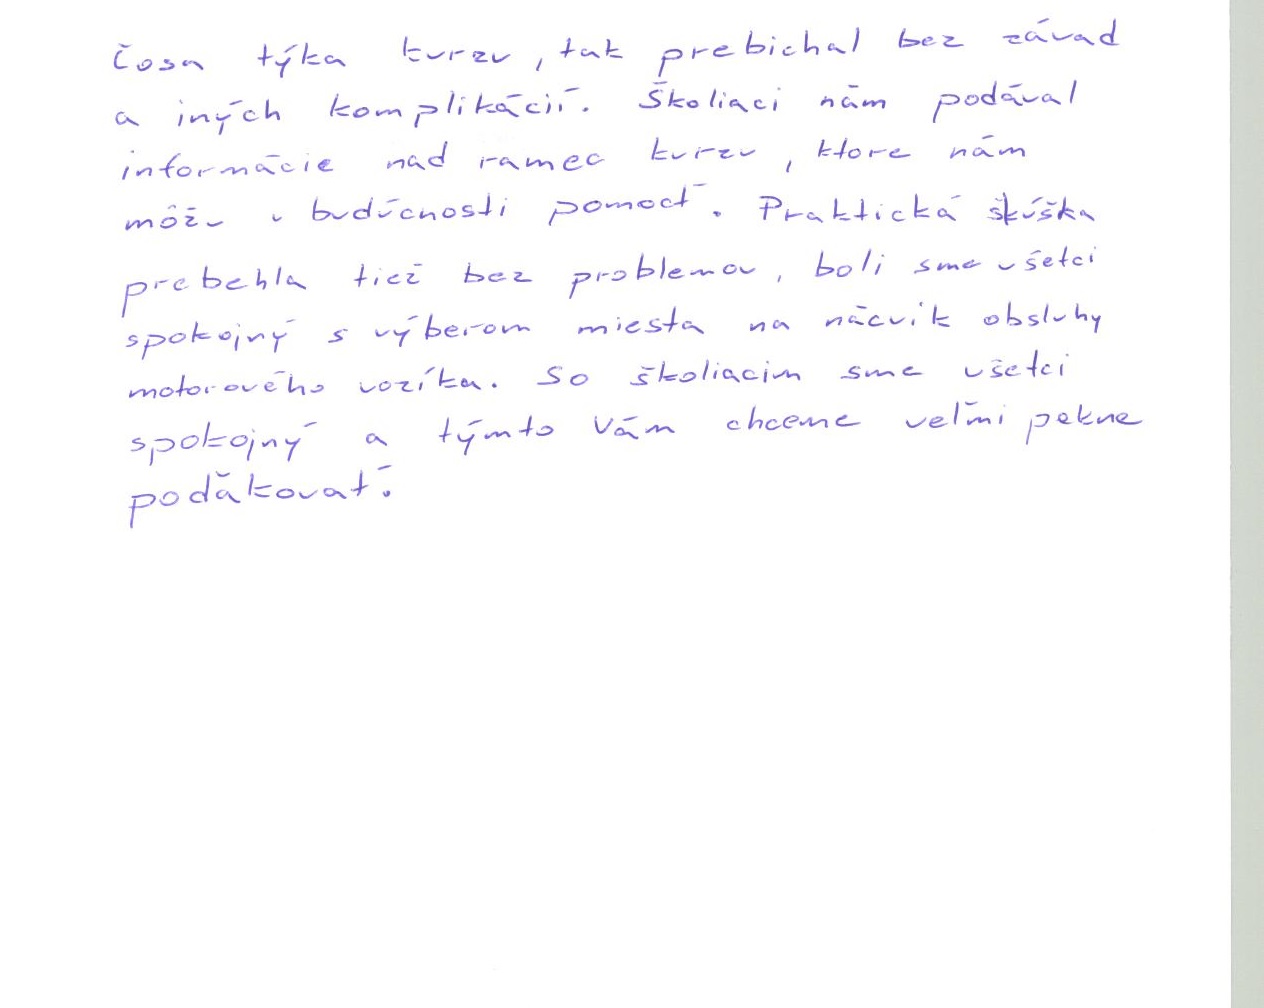 Čosa týka kurzu, tak prebichal bez závad
a iných komplikácií. Školiaci nám podával
informácie nad ramec kurzu, ktore nám
môžu v budúcnosti pomocť. Praktická skúška
prebehla tiež bez problemov, boli sme všetci
spokojný s výberom miesta na nácvik obsluhy
motorového vozíka. So školiacim sme všetci
spokojný a týmto Vám chceme veľmi pekne
poďakovať.